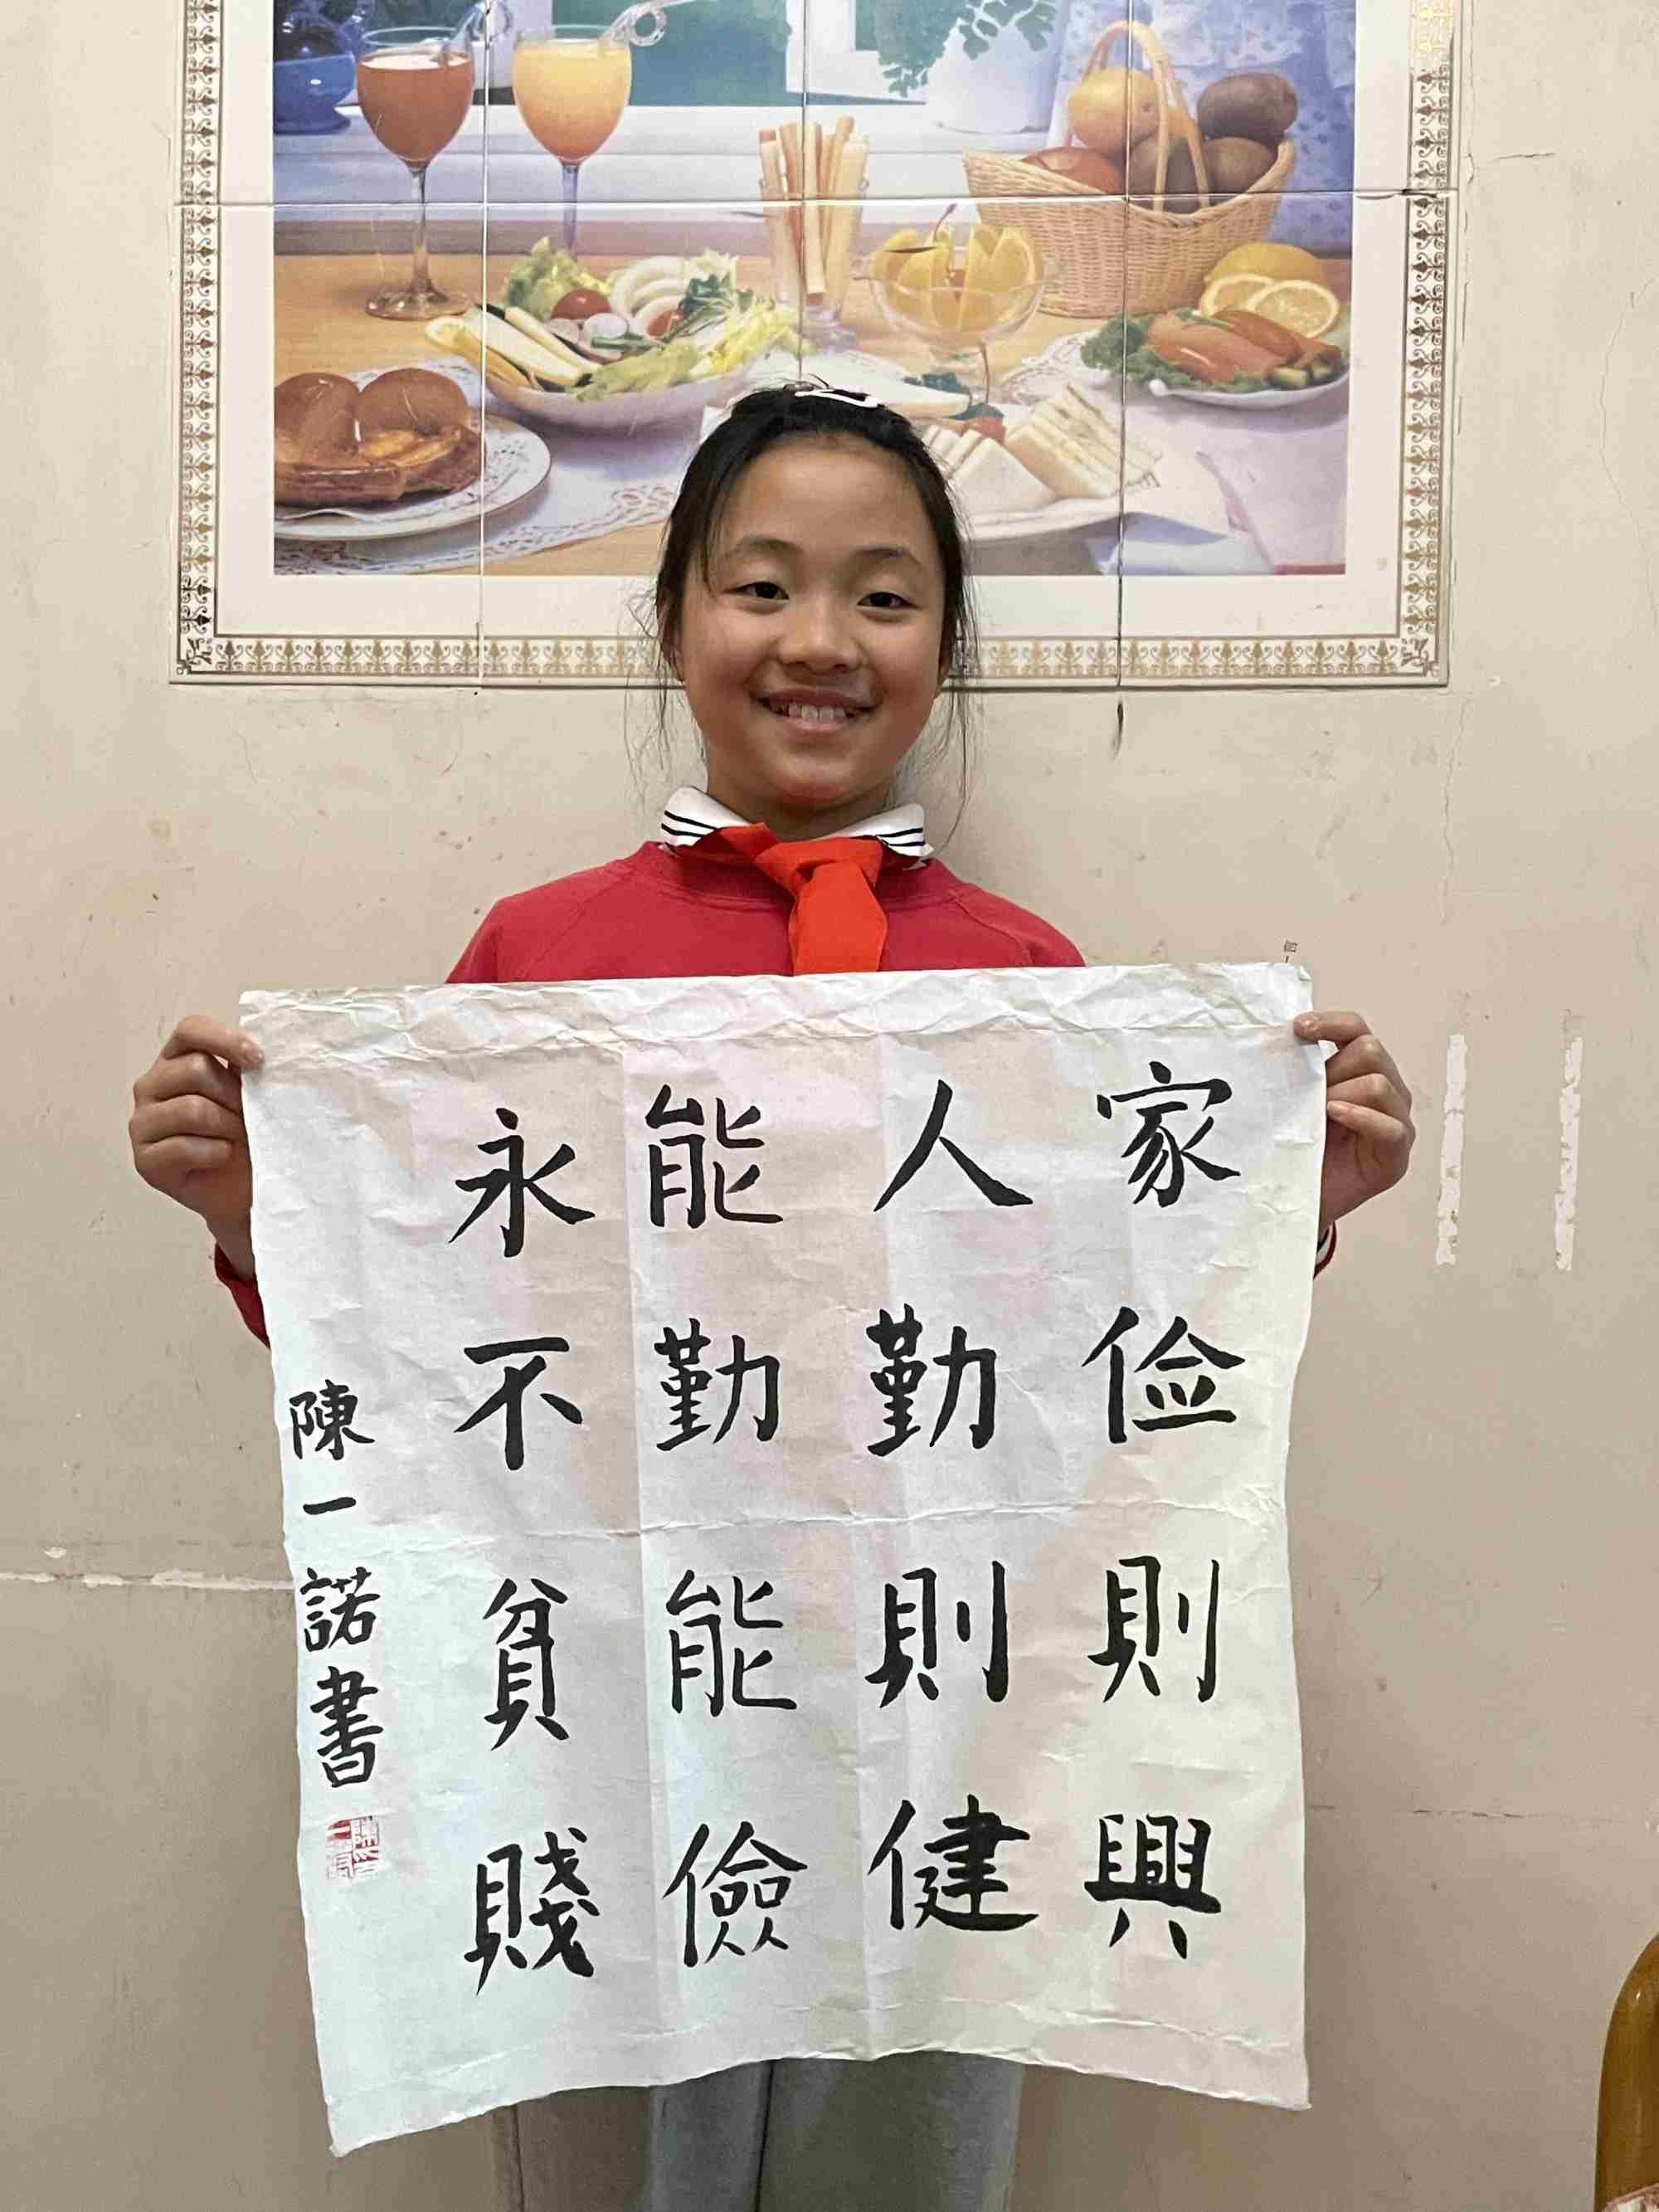 家俭則興
人勤則健
能勤能儉
永不貧賤
陳一諾書